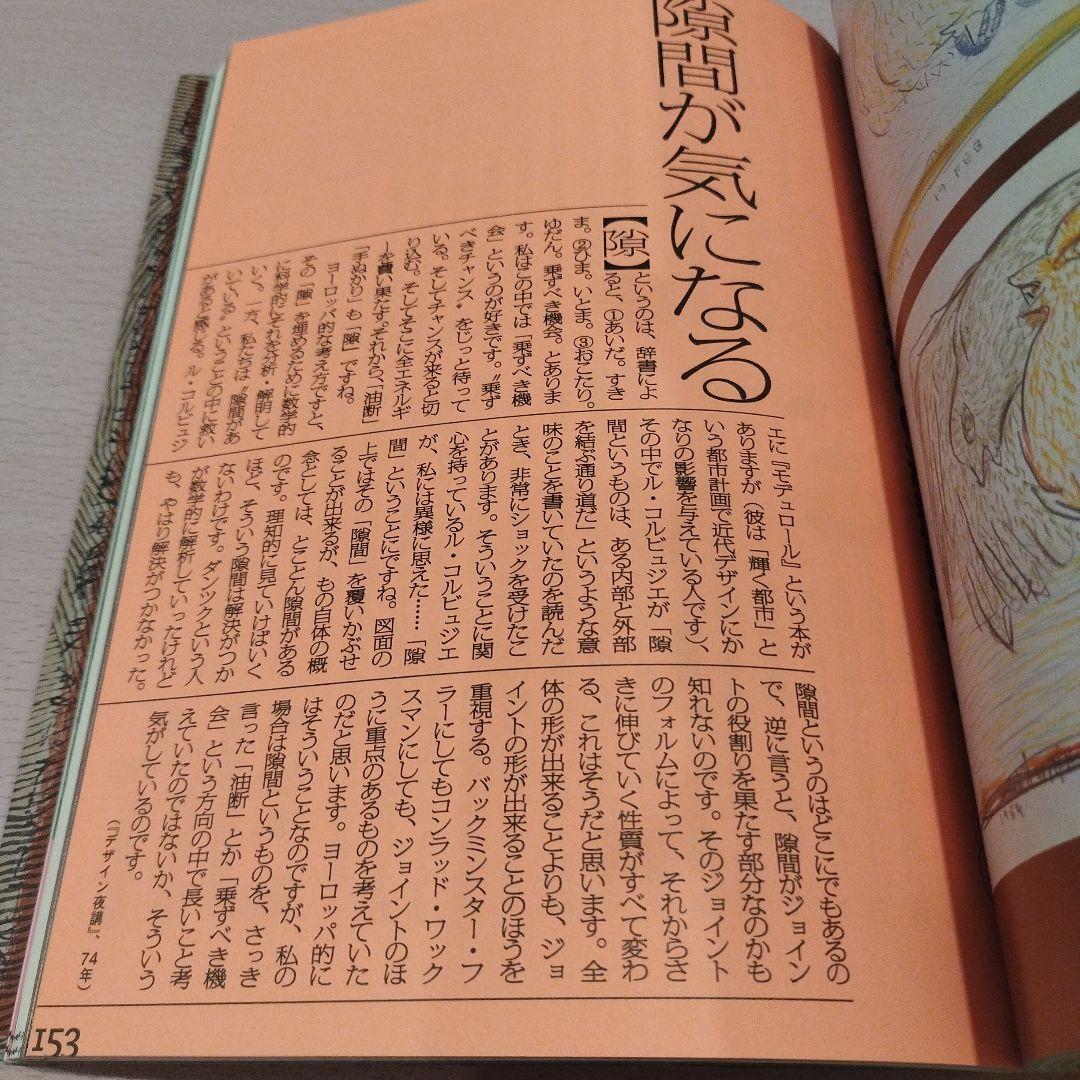 隙間が気になる
【隙】というのは、辞書によ
ると、①あいだ。すき
ま。②ひま。いとま。③おこたり。
ゆだん。乗ずべき機会。とありま
す。私はこの中では「乗ずべき機
会」というのが好きです。〝乗ず
べきチャンス〟をじっと待って
いる。そしてチャンスが来ると切
り込む。そしてそこに全エネルギ
ーを費い果たす。それから、「油断」
「手ぬかり」も「隙」ですね。
ヨーロッパ的な考え方ですと、
その「隙」を埋めるために数学的
に科学的にそれを分析・解明して
いく。一方、私たちは〝隙間があ
いている〟ということの中に救い
があると感じる。ル・コルビュジ
エに『モデュロール』という本が
ありますが（彼は「輝く都市」と
いう都市計画で近代デザインにか
なりの影響を与えている人です）、
その中でル・コルビュジエが「隙
間というものは、ある内部と外部
を結ぶ通り道だ」というような意
味のことを書いていたのを読んだ
とき、非常にショックを受けたこ
とがあります。そういうことに関
心を持っているル・コルビュジエ
が、私には異様に思えた……「隙
間」ということにですね。図面の
上ではその「隙間」を覆いかぶせ
ることが出来るが、もの自体の概
念としては、とことん隙間がある
のです。理知的に見ていけばいく
ほど、そういう隙間は解決がつか
ないわけです。ダンツックという人
が数学的に解析していったけれど
も、やはり解決がつかなかった。
隙間というのはどこにでもあるの
で、逆に言うと、隙間がジョイン
トの役割りを果たす部分なのかも
知れないのです。そのジョイント
のフォルムによって、それからさ
きに伸びていく性質がすべて変わ
る、これはそうだと思います。全
体の形が出来ることよりも、ジョ
イントの形が出来ることのほうを
重視する。バックミンスター・フ
ラーにしてもコンラッド・ワック
スマンにしても、ジョイントのほ
うに重点のあるものを考えていた
のだと思います。ヨーロッパ的に
はそういうことなのですが、私の
場合は隙間というものを、さっき
言った「油断」とか「乗ずべき機
会」という方向の中で長いこと考
えていたのではないか、そういう
気がしているのです。
（『デザイン夜講』、74年）
153